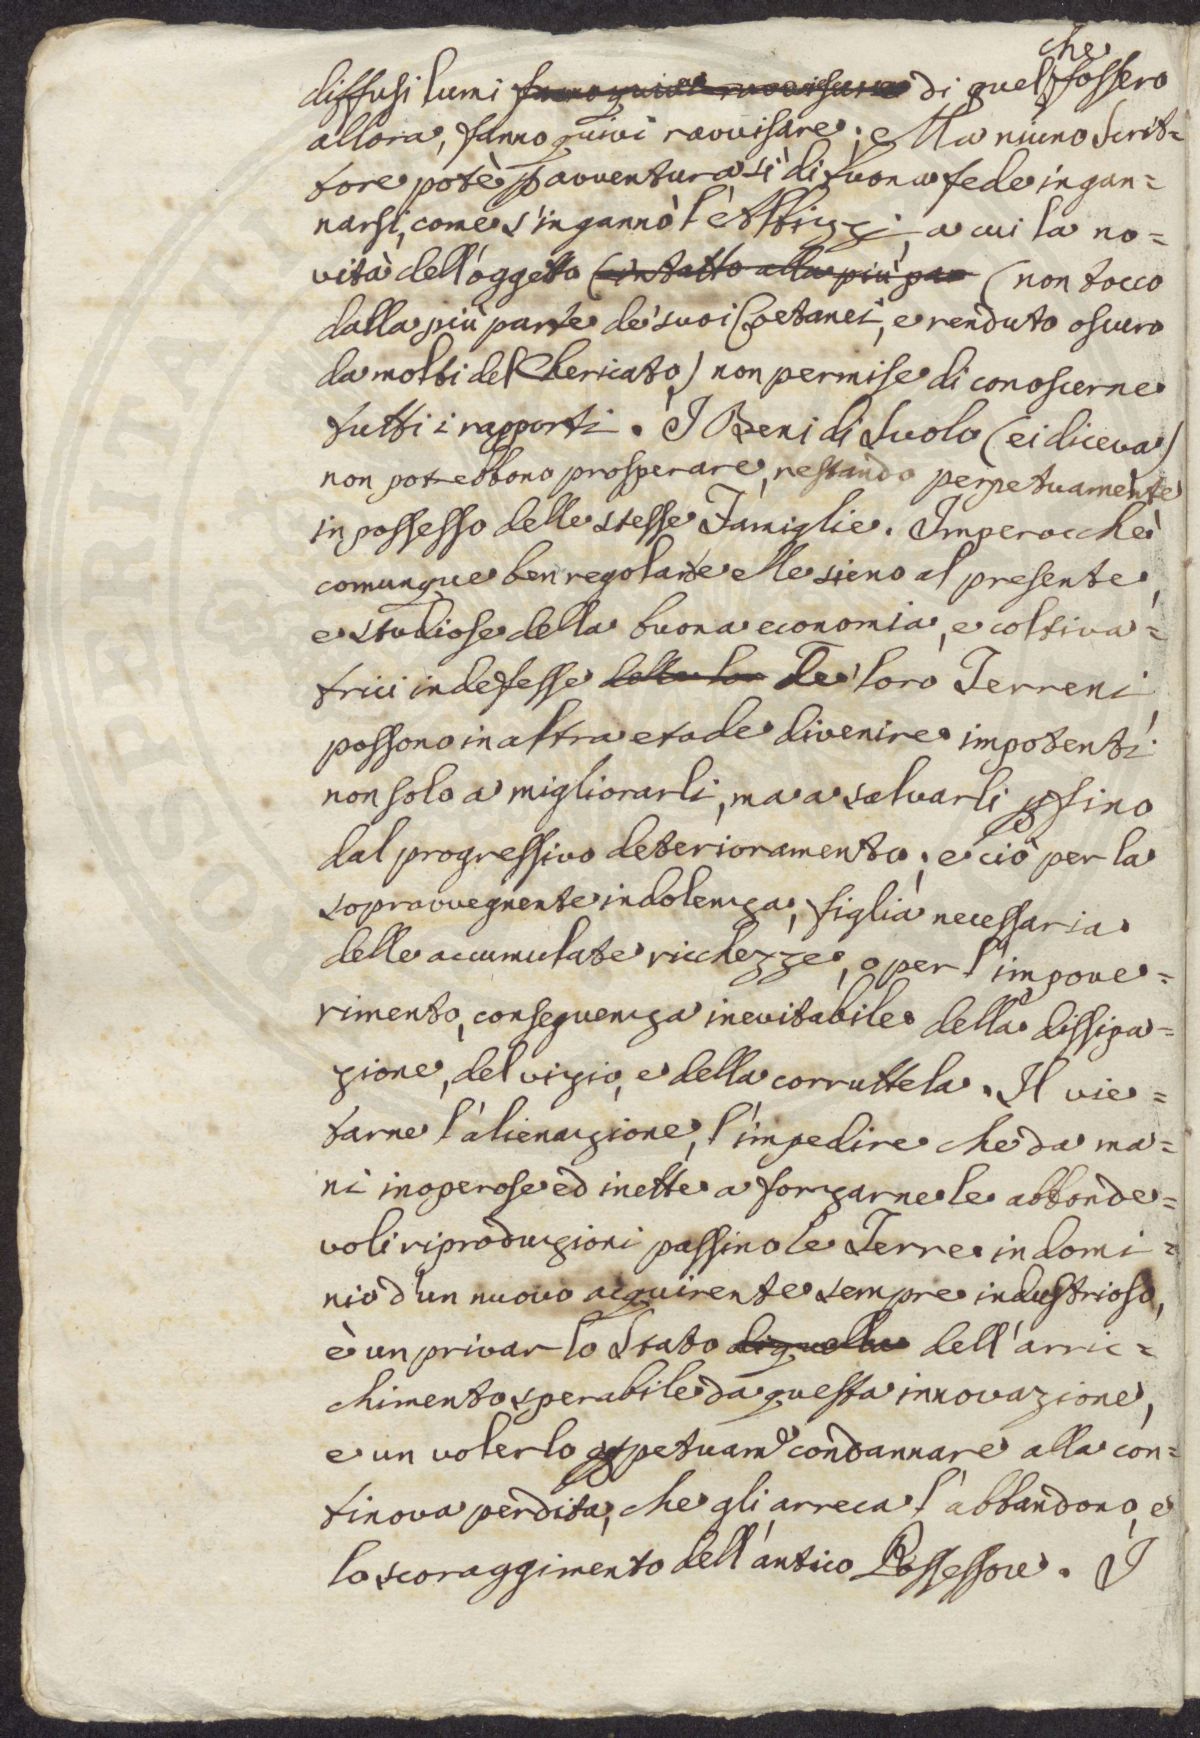 che
diffusi lumi fanno quivi ravvisare di quel fossero
allora, fanno quivi ravvisare; Ma niuno Scrit=
tore potè p avventura sì di buona fede ingan=
narsi, come s'ingannò l'Albizzi, a cui la no=
vità dell'oggetto (intatto alla più par (non tocco
dalla più parte de' suoi Coetanei, e renduto oscuro
da molti del Chericato) non permise di conoscerne
tutti i rapporti. I Beni di Suolo (ei diceva)
non potrebbono prosperare, restando perpetuamente
in possesso delle stesse Famiglie. Imperocchè
comunque ben regolate elle sieno al presente,
e studiose della buona economia, e coltiva=
trici indefesse della lor De' loro Terreni,
possono in altra etade divenire impotenti
non solo a migliorarli, ma a salvarli p fino
dal progressivo deterioramento; e ciò per la
sopravvegnente indolenza, figlia necessaria
delle accumulate ricchezze, o per l'impove=
rimento, conseguenza inevitabile della dissipa=
zione, del vizio, e della corruttela. Il vie=
tarne l'alienazione, l'impedire che da ma=
ni inoperose ed inette a forzarne le abbonde=
voli riproduzioni passino le Terre in domi=
nio d'un nuovo acquirente sempre industrioso,
è un privar lo Stato di quella dell'arric=
chimento sperabile da questa innovazione,
e un volerlo ppetuam.e condannare alla con=
tinova perdita, che gli arreca l'abbandono, e
lo scoraggimento dell'antico Possessore. I